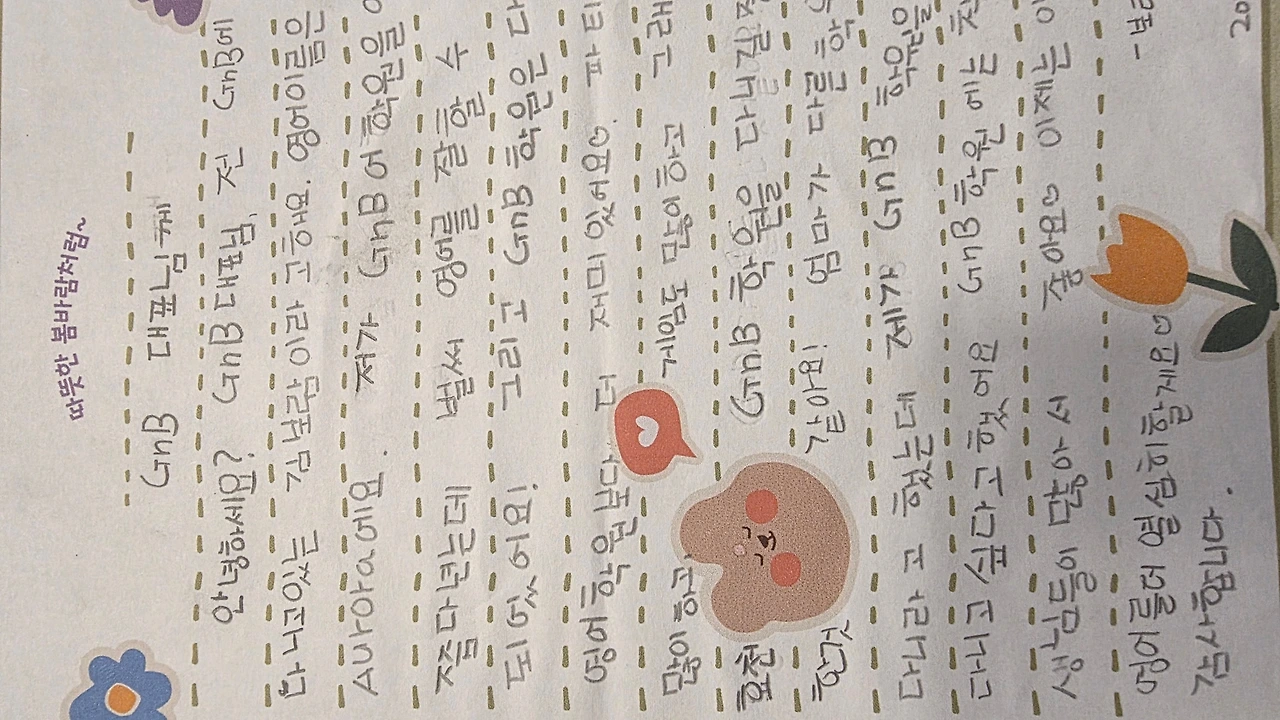 따뜻한 봄바람처럼~
GnB 대표님께
안녕하세요? GnB대표님, 전 GnB에
다니고있는 김보람이라고해요. 영어이름은
Aurora에요. 저가 GnB어학원을
즘다녔는데 벌써 영어를 잘할 수
되었어요! 그리고 GnB학원은 다
영어학원보다 더 재미있어요♡. 파티
많이 하고, 게임도 많이하고 그래
GnB 학원을 다닐
한것 같아요! 엄마가 다른 학
다니라고 했는데 제가 GnB 학원을
다니고 싶다고 했어요 GnB학원에는 친
생님들이 많아서 좋아요♡ 이제는
영어를더 열심히할게요♡
감사합니다.
20